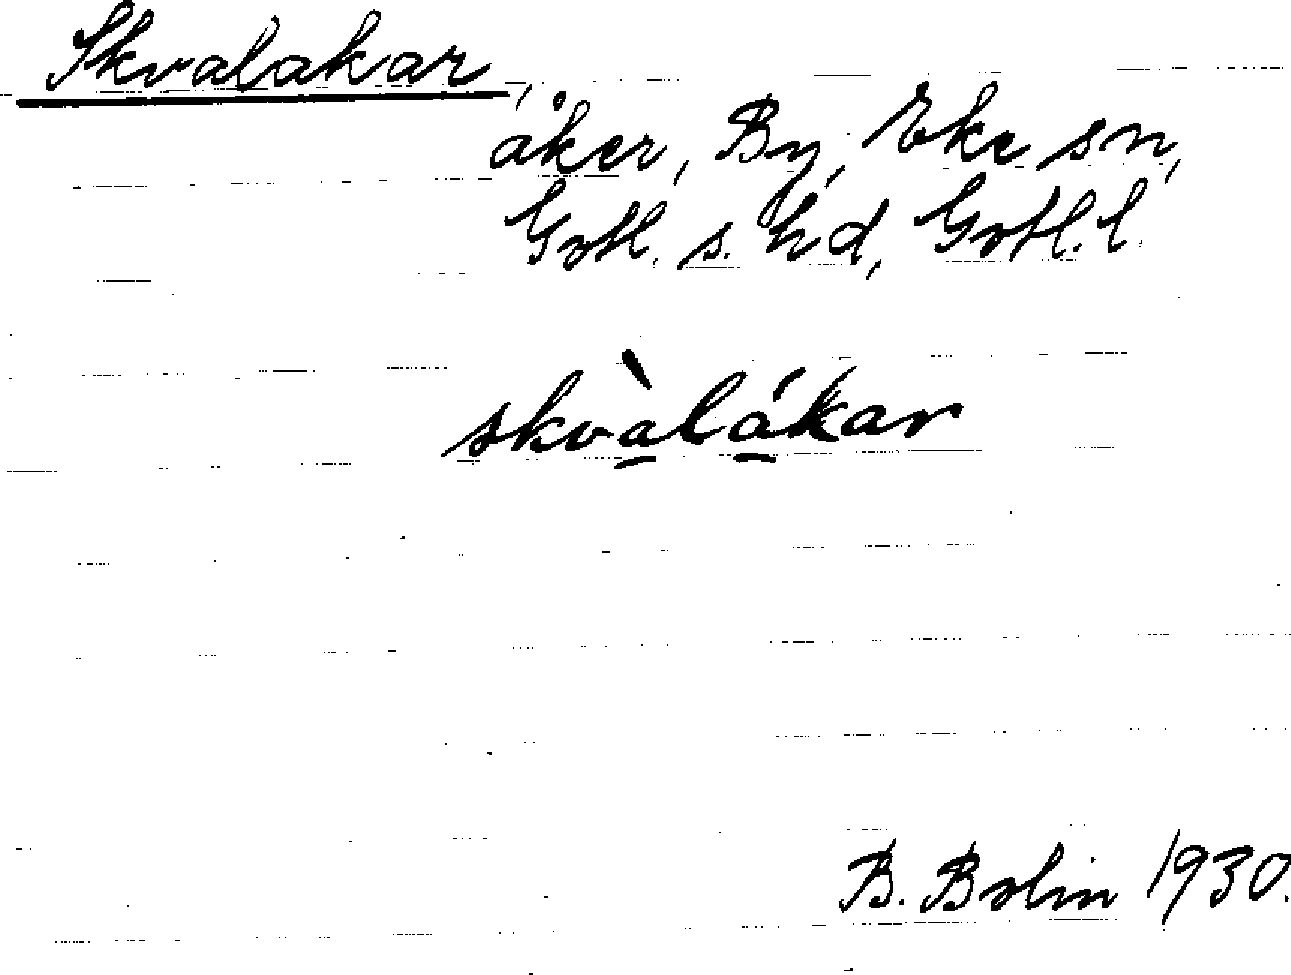 Skvalakar,
åker, By, Eke sn,
Gotl. s. hd, Gotl. l.
skvàlákar
B. Bolin 1930.